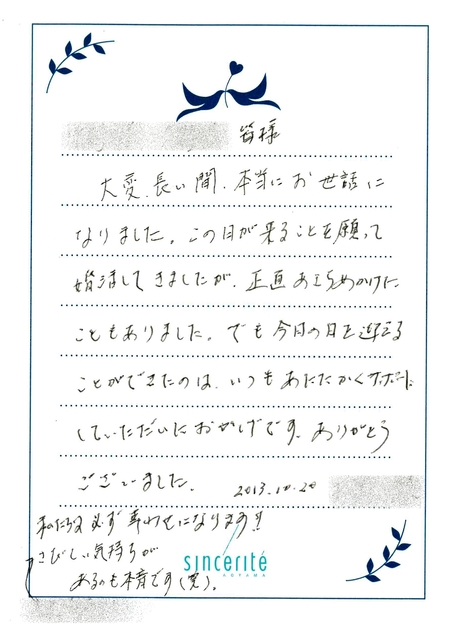 皆様
大変、長い間、本当にお世話に
なりました。この日が来ることを願って
婚活してきましたが、正直あきらめかけた
こともありました。でも今日の日を迎える
ことができたのは、いつもあたたかくサポート
していただいたおかげです。ありがとう
ございました。 2013.10.20
私たちは必ず幸わせになります!!
さびしい気持ちが
あるのも本音です(笑)。
sincerité
AOYAMA